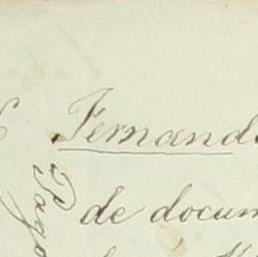 Fernand
de docum
Pago